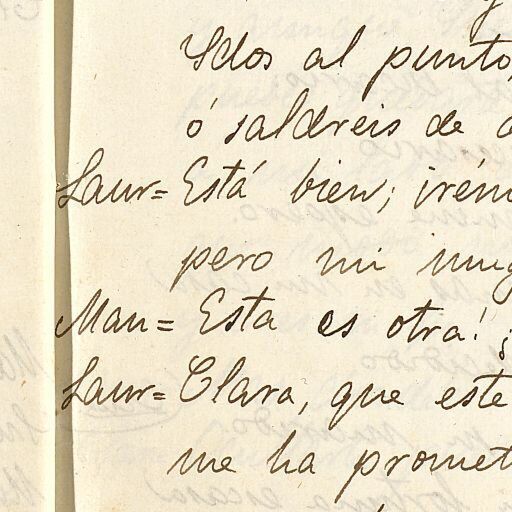 Idos al punto,
ó saldreis de
Laur= Está bien; irém
pero mi
Man= Esta es otra! ¡
Laur= Clara, que este
me ha promet